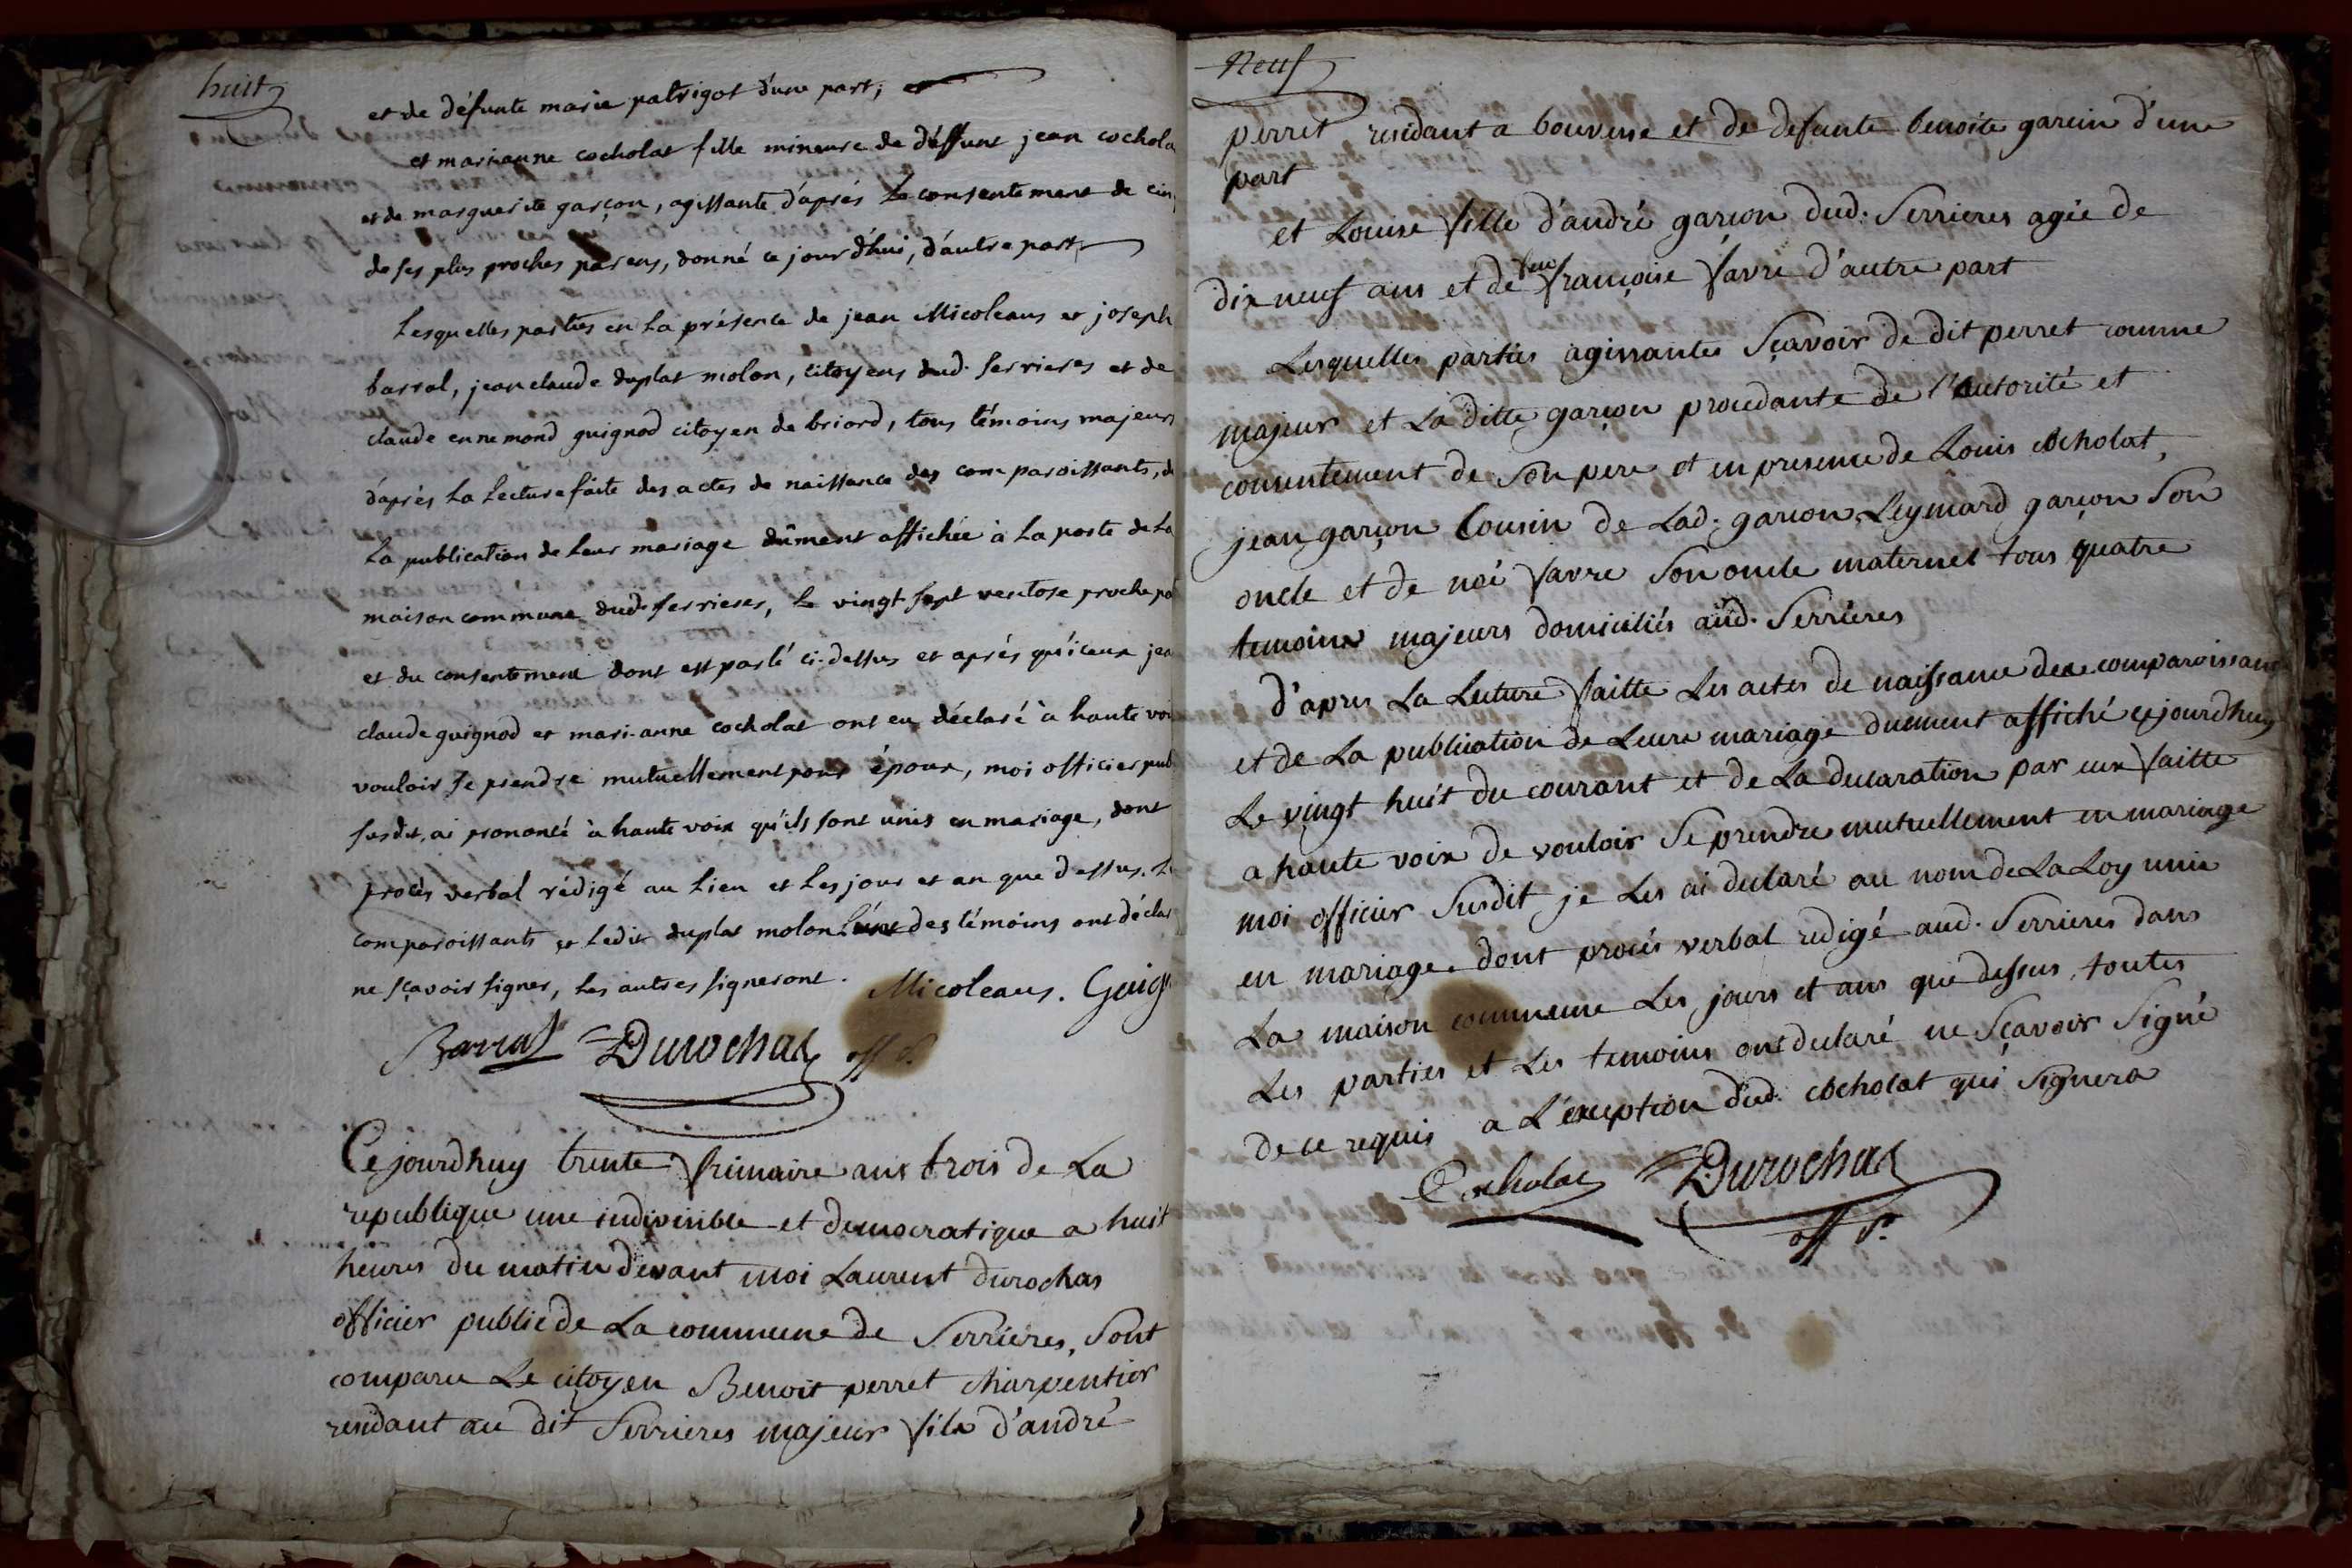 huit
et de défunte marie patrigot d'une part; et
et marianne cocholat fille mineure de déffunt jean cochola
et de marguerite garçon, agissante d'après le consentement de cin
de ses plus proches parens, donné ce jourd'hui, d'autre part,
Lesquelles parties en la présence de jean Micoleaus et joseph
barral, jean claude duplat molon, citoyens dud. serrieres et de
claude ennemond guignod citoyen de briord, tous témoins majeurs
d'après la lecture faite des actes de naissance des comparoissants, de
la publication de leur mariage dûment affichée à la porte de la
maison commune dud. serrieres, le vingt sept ventose proche pa
et du consentement dont est parlé ci-dessus et après qu'iceux jea
claude guignod et mari-anne cocholat ont eu déclaré à haute voi
vouloir se prendre mutuellement pour époux, moi officier pub
susdit, ai prononcé à haute voix qu'ils sont unis en mariage, dont
procès verbal rédigé au lieu et les jour et an que dessus. L
comparoissants et ledit duplat molon l'un des témoins ont déclar
ne sçavoir signer, les autres signeront. Micoleaus. Guig
Barral Durochat off p.
Cejourdhuy trente frimaire ans trois de La
republique une indivisible et democratique a huit
heures du matin devant moi Laurent durochas
officier public de La commune de Serrières, Sont
comparu Le citoyen Benoit perret charpentier
residant au dit Serrieres majeur fils d'andré
Neuf
perret residant a bouvesse et de defunte benoite garein d'une
part
et Louise fille d'andré garçon dud. Serrieres agée de
dix neuf ans et de feu françoise favre d'autre part
Lesquelles parties agissantes Sçavoir de dit perret comme
majeur et La ditte garçon procedante de l'autorité et
consentement de Son pere et en presence de Louis cocholat,
jean garçon Cousin de Lad. garçon, Leymard garçon Son
oncle et de noé favre Son oncle maternel tous quatre
temoins majeurs domiciliés aud. Serrières
d'apres La Lecture faitte Les actes de naissance des comparoissans
et de La publication de Leurs mariage duement affiché cejourdhuy
Le vingt huit du courant et de La declaration par eux faitte
a haute voix de vouloir Se prendre mutuellement en mariage
moi officier Susdit je Les ai declaré au nom de La Loy unie
en mariage. dont procés verbal redigé aud. Serrieres dans
La maison commune Les jours et ans que dessus. toutes
Les parties et Les temoins ont declaré ne Sçavoir Signé
de ce requis a L'exception dud. cocholat qui Signera
Cocholat Durochat
off p.